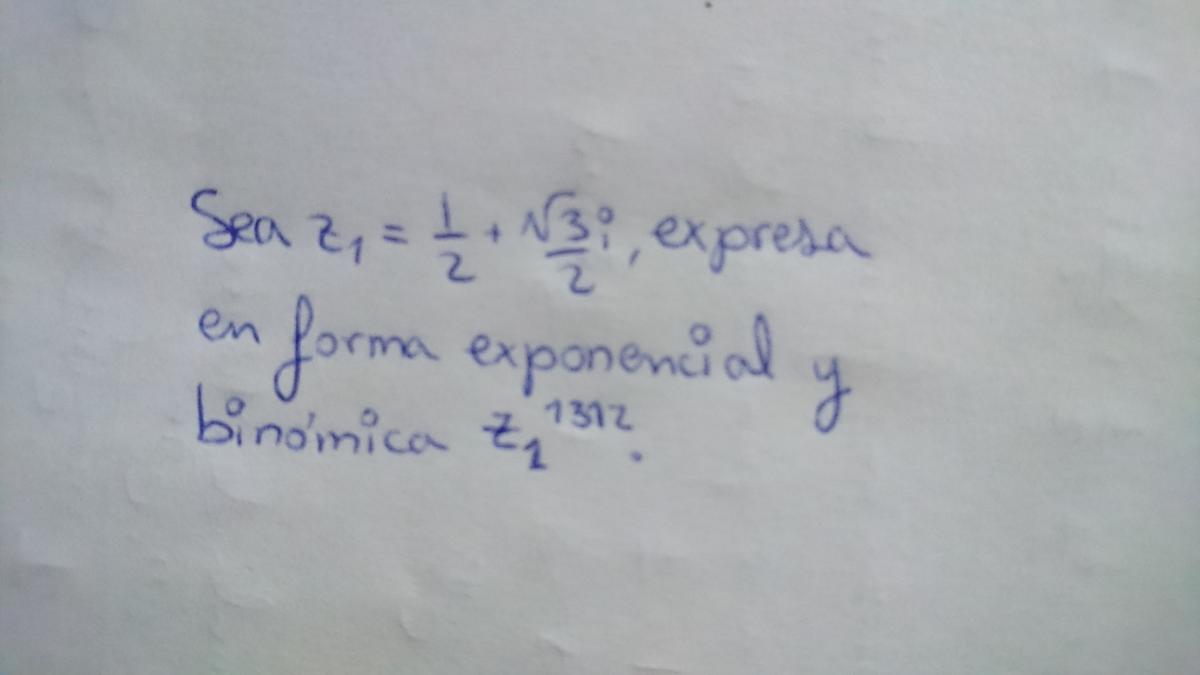 Sea z₁ = 1/2 + √3/2 i, expresa
en forma exponencial y
binómica z₁¹³¹².